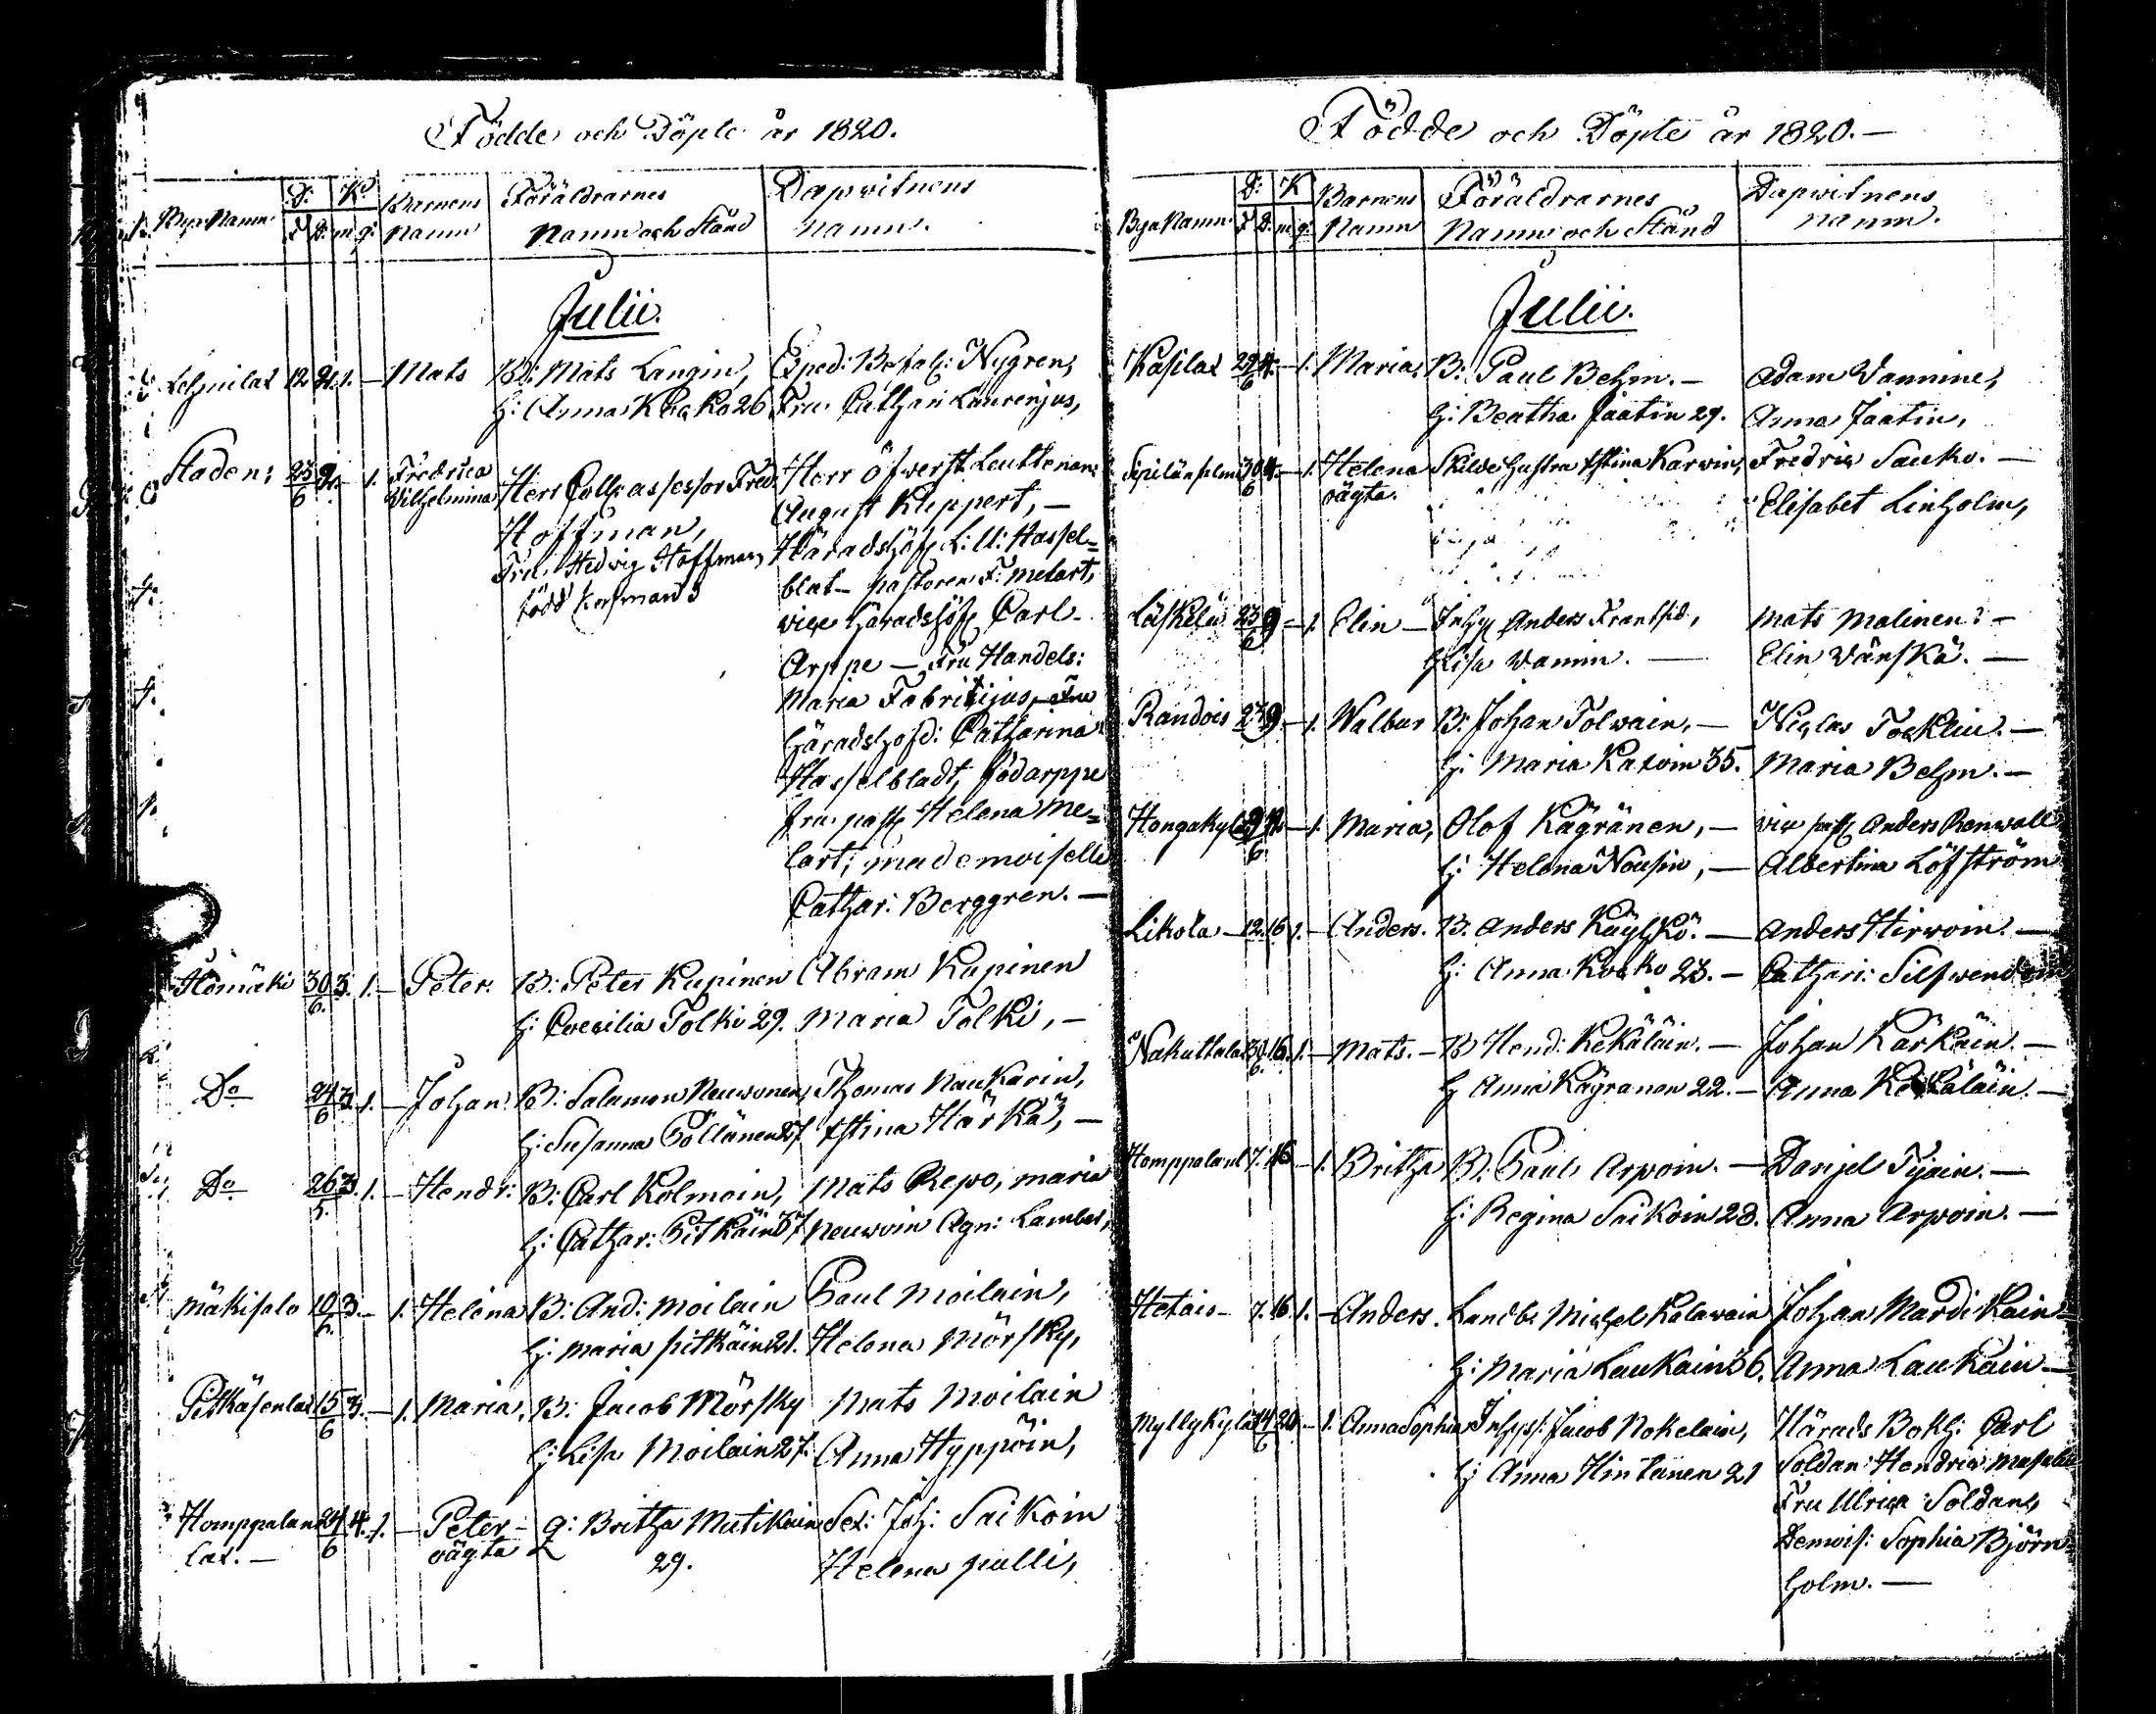 Födde och Döpte år 1820.
D: K:
Bya Namn F D: m q: Barnens Namn Föräldrarnes Namn och Stånd Dopwitnens namn.
Julii.
12 2. 1. — Mats B: Mats Langin, Exped: Befalh: Nygren,
h: Anna Kosko 26 Fru Cathari Laurenjus,
Staden: 23/6 2. — 1. Fredrica Wilhelmina Herr Coll: assessor Fred: Herr öfwerst Leuttenan:
Hoffman, August Kluppert, —
Fru Hedwig Hoffman, Häradshöf: L: U: Hassel=
född blat — pastoren F: Melart,
vice Häradshöf: Carl
Arppe — Fru Handels:
Maria Fabritijus, Fru
häradshofd: Catharina
Hasselbladt, föd arppe
fru past: Helena Me=
lart, mademoiselle
Cathar: Berggren. —
30/6. 3. 1. — Peter. B: Peter Kupinen Abram Kupinen
h: Coecilia Tolki 29. Maria Tolki, —
Do 24/6 3. 1. — Johan. B: Salamon Neuwonen, Thomas Naukarin,
h: Susanna Pöllänen 27 Xstina Härkä, —
Do 26/5. 3. 1. — Hendr: B: Carl Kolmoin, Mats Repo, maria
h: Cathar: Pitkäin 37 neuwoin Agn: Lamber,
Mäkisalo 10/6. 3. — 1. Helena B: And: Moilain Paul Moilain,
h: Maria pitkäin 21. Helena Mörsky,
Pitkäsenlax 15/6 3. — 1. Maria. B: Jacob Mörsky Mats Moilain
h: Lisa Moilain 27. Anna Hyppöin,
Homppalan 24/6 4. 1. — Peter — q: Britha Mutikain Sex: Joh: Saikoin
lax. — oägta 29. Helena pulli,
Födde och Döpte år 1820. —
D: K
Bya Namn F D. m q: Barnens Namn Föräldrarnes Namn och Stånd Dopwitnens namn.
Julii.
Kasilax 29/6 4. — 1. Maria. B: Paul Behm. — Adam Wannine,
h: Beatha Jaatin 29. Anna Jaatin,
30/6 4. — 1. Helena Skilde hustru Xstina Karwin, Fredric Sauko. —
oägta. Elisabet Linholm,
Läskelä 23/6 9 — 1. Elin — Inhy: Anders Frantsid, Mats Malinen: —
h: Lisa Wanin. — Elin Wänskä. —
Randois 27 9. — 1. Walbur B: Johan Tolwain, — Niclas Tocklin. —
h: Maria Katoin 35. Maria Behm. —
Hongakylä — 1. Maria, Olof Kägränen, — vice past: Anders Renwall
h: Helena Nousin, — Albertina Löfström
Likola — 12. 16 1. — Anders. B. Anders Käyhkö. — Anders Hirwoin. —
h: Anna Kosko 23. — Cathari: Silfwendoin
Nakuttalax 30/6. 16. 1. — Mats. — B Hend: Kekäläin. — Johan Kärkäin. —
h: Anna Kägränen 22. — Anna Kekäläin. —
Homppalanl 7. 16 — 1. Britha B. Paul Arpoin. — Danjel Tijain. —
h: Regina Saikoin 28. Anna Arpoin. —
Hetais — 7. 16. 1. — Anders. Landb: Michel Kalawain Johan Mardikain —
h: Maria Laukain 36. Anna Laukain —
Myllykylä 14/6 20. — 1. Anna Sophia Inhys: Jacob Nokelain, Härads Bokh: Carl
h: Anna Hintunen 21 Soldan: Hendric:
Fru Ulrica Soldan,
Demois: Sophia Björn=
holm. —